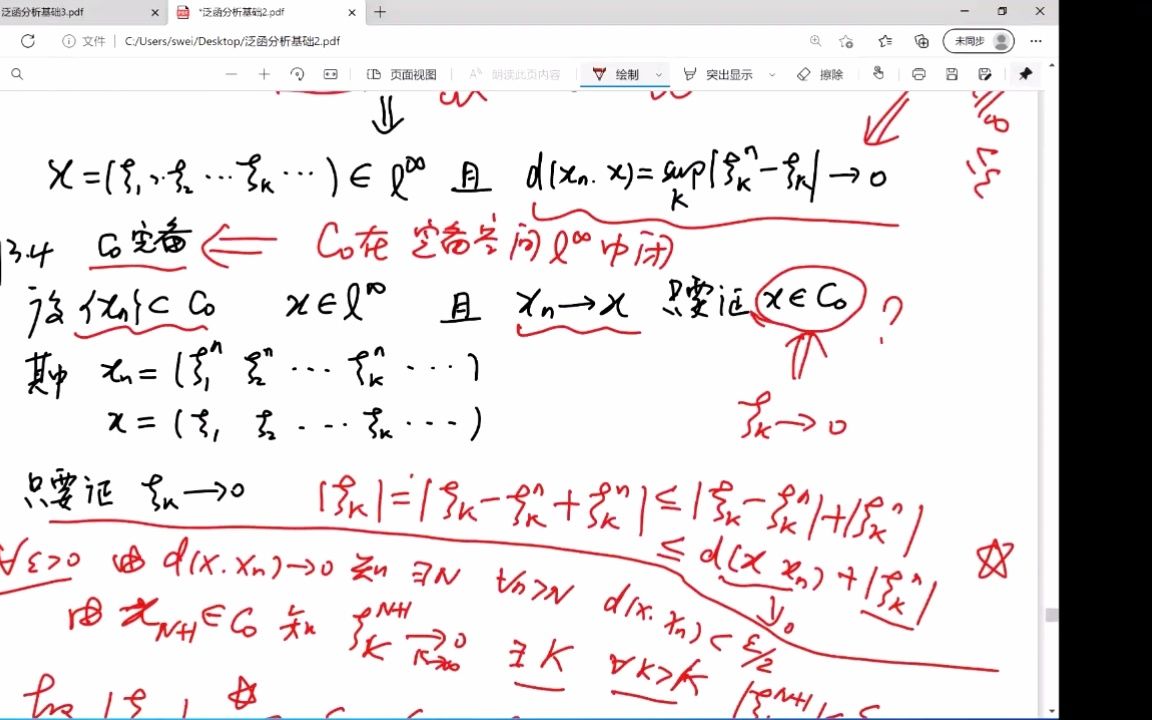 泛函分析基础3.pdf
*泛函分析基础2.pdf
文件 C:/Users/swei/Desktop/泛函分析基础2.pdf
未同步
页面视图 朗读此页内容 绘制 突出显示 擦除
x = (ξ₁, ξ₂ ⋯ ξₖ ⋯) ∈ l^∞ 且 d(xₙ. x) = sup_k |ξₖⁿ − ξₖ| → 0
3.4 C₀ 完备 ⇐ C₀在 完备空间 l^∞ 中闭
设 {xₙ} ⊂ C₀ x ∈ l^∞ 且 xₙ → x 只要证 x ∈ C₀ ?
其中 xₙ = (ξ₁ⁿ ξ₂ⁿ ⋯ ξₖⁿ ⋯)
x = (ξ₁ ξ₂ ⋯ ξₖ ⋯)
ξₖ → 0
只要证 ξₖ → 0 |ξₖ| = |ξₖ − ξₖⁿ + ξₖⁿ| ≤ |ξₖ − ξₖⁿ| + |ξₖⁿ|
≤ d(x xₙ) + |ξₖⁿ| ☆
↓0
∀ε>0 由 d(x. xₙ) → 0 知 ∃N ∀n>N d(x. xₙ) < ε/2
由 x_{N+1} ∈ C₀ 知 ξₖ^{N+1} → 0 k→∞ ∃K ∀k>K